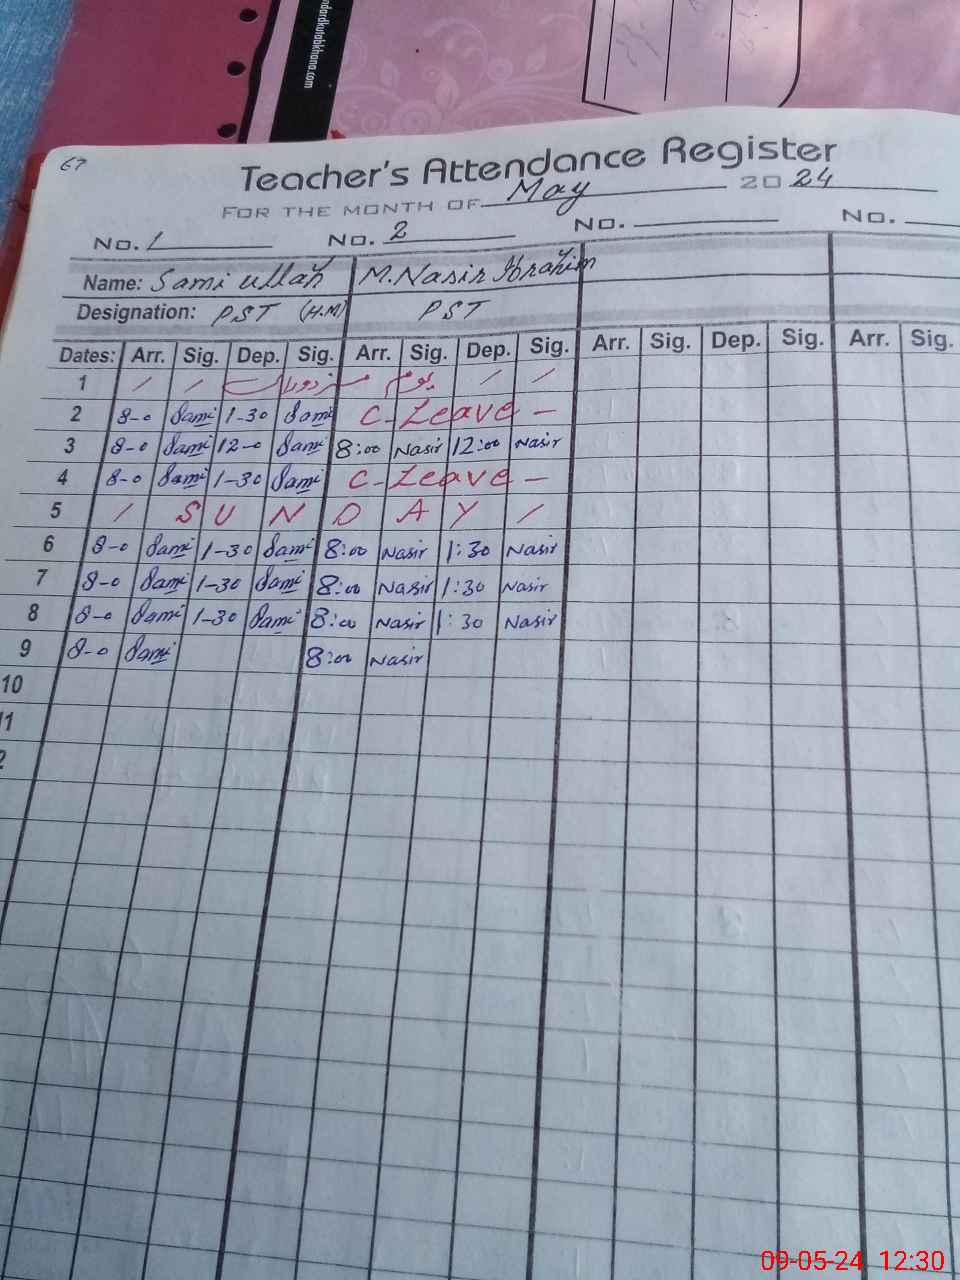 ndardkutabkhana.com
67
Teacher's Attendance Register
FOR THE MONTH OF May 2024
No. 1 No. 2 No. No.
Name: Sami ullah M. Nasir Ibrahim
Designation: PST (H.M) PST
Dates: Arr. Sig. Dep. Sig. Arr. Sig. Dep. Sig. Arr. Sig. Dep. Sig. Arr. Sig.
1 / / یوم مزدوراں / /
2 8-0 Sami 1-30 Sami C-Leave -
3 8-0 Sami 12-0 Sami 8:00 Nasir 12:00 Nasir
4 8-0 Sami 1-30 Sami C-Leave -
5 / SUNDAY /
6 8-0 Sami 1-30 Sami 8:00 Nasir 1:30 Nasir
7 8-0 Sami 1-30 Sami 8:00 Nasir 1:30 Nasir
8 8-0 Sami 1-30 Sami 8:00 Nasir 1:30 Nasir
9 8-0 Sami 8:00 Nasir
10
11
2
09-05-24 12:30